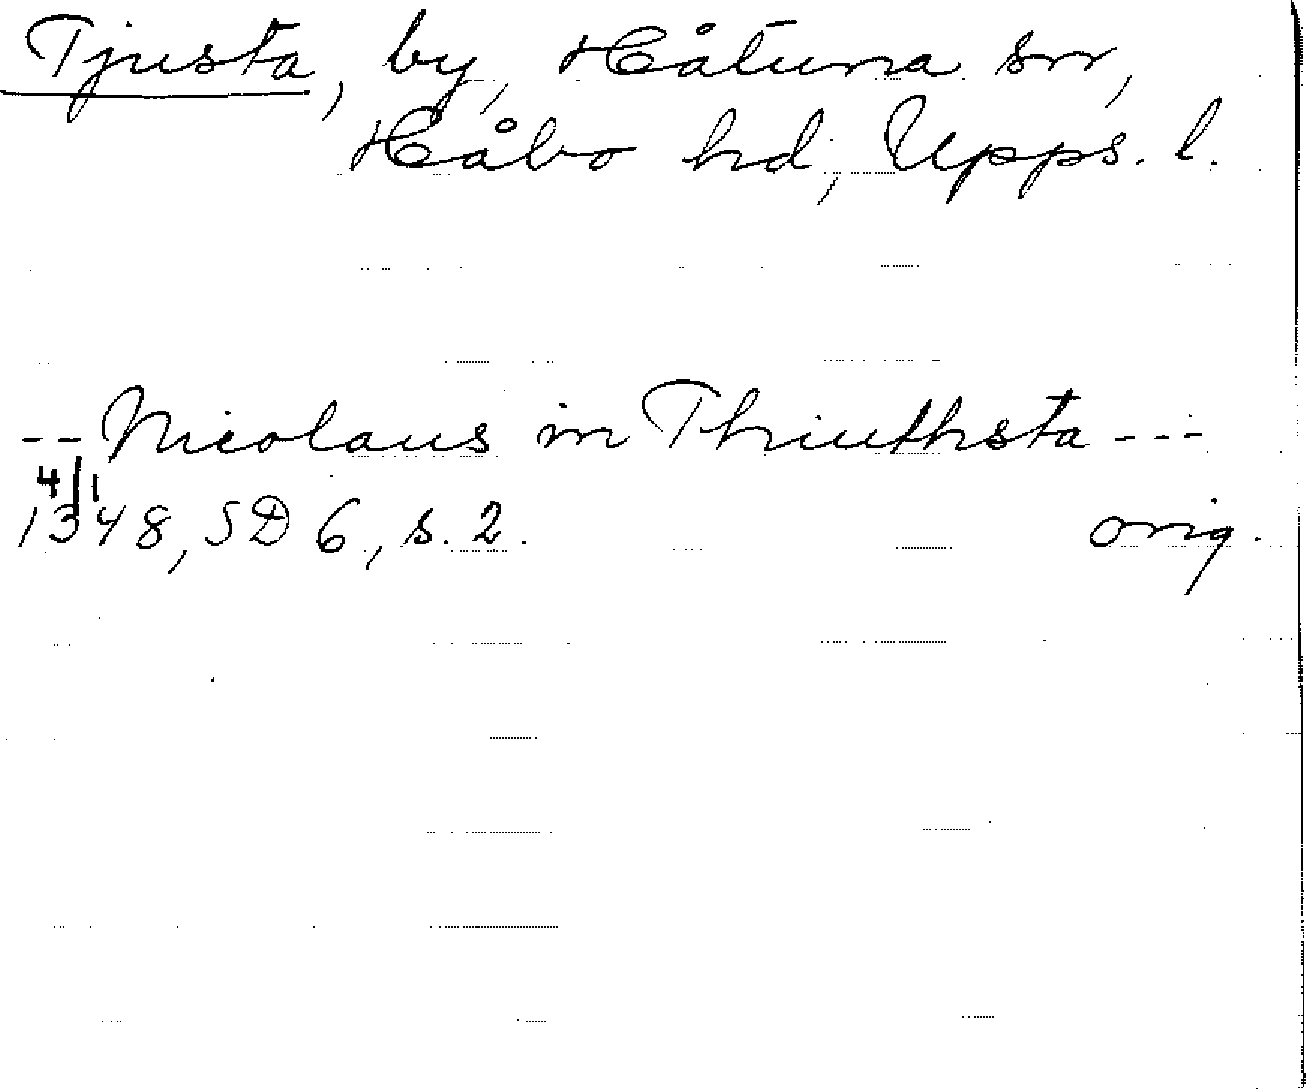 Tjusta, by, Håtuna sn,
Håbo hd, Upps. l.
-- Nicolaus in Thiuthsta ---
4/1
1348, SD 6, s. 2. orig.